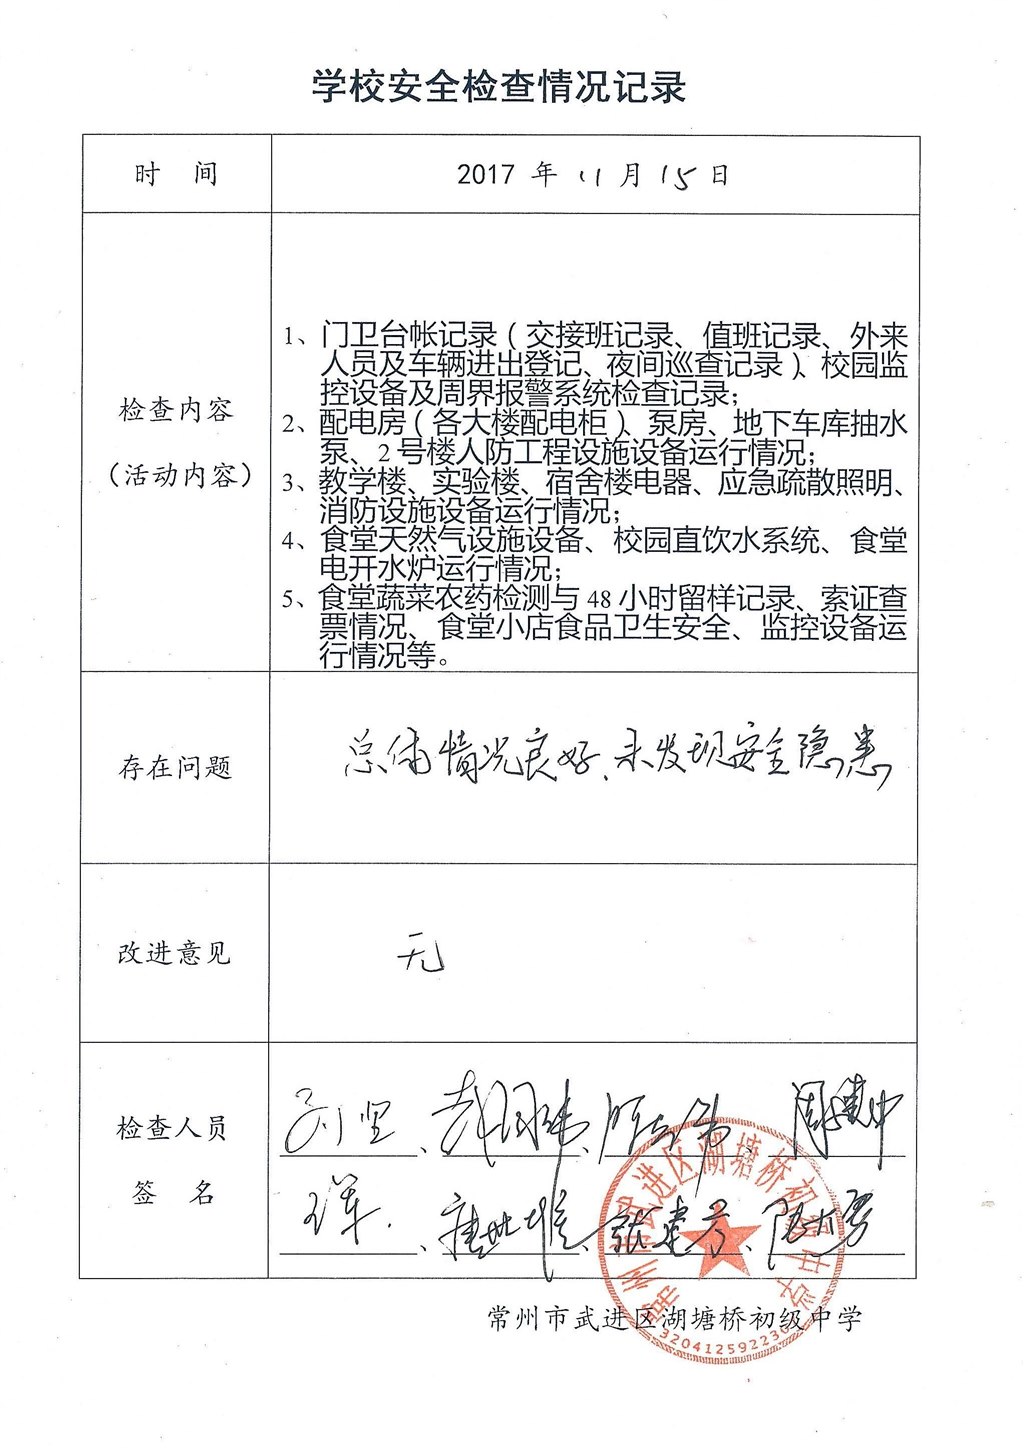 学校安全检查情况记录
时 间
2017 年 11 月 15 日
检查内容
（活动内容）
1、门卫台帐记录（交接班记录、值班记录、外来
人员及车辆进出登记、夜间巡查记录）、校园监
控设备及周界报警系统检查记录；
2、配电房（各大楼配电柜）、泵房、地下车库抽水
泵、2 号楼人防工程设施设备运行情况；
3、教学楼、实验楼、宿舍楼电器、应急疏散照明、
消防设施设备运行情况；
4、食堂天然气设施设备、校园直饮水系统、食堂
电开水炉运行情况；
5、食堂蔬菜农药检测与 48 小时留样记录、索证查
票情况、食堂小店食品卫生安全、监控设备运
行情况等。
存在问题
总体情况良好、未发现安全隐患
改进意见
无
检查人员
签 名
常州市武进区湖塘桥初级中学
常州市武进区湖塘桥初级中学